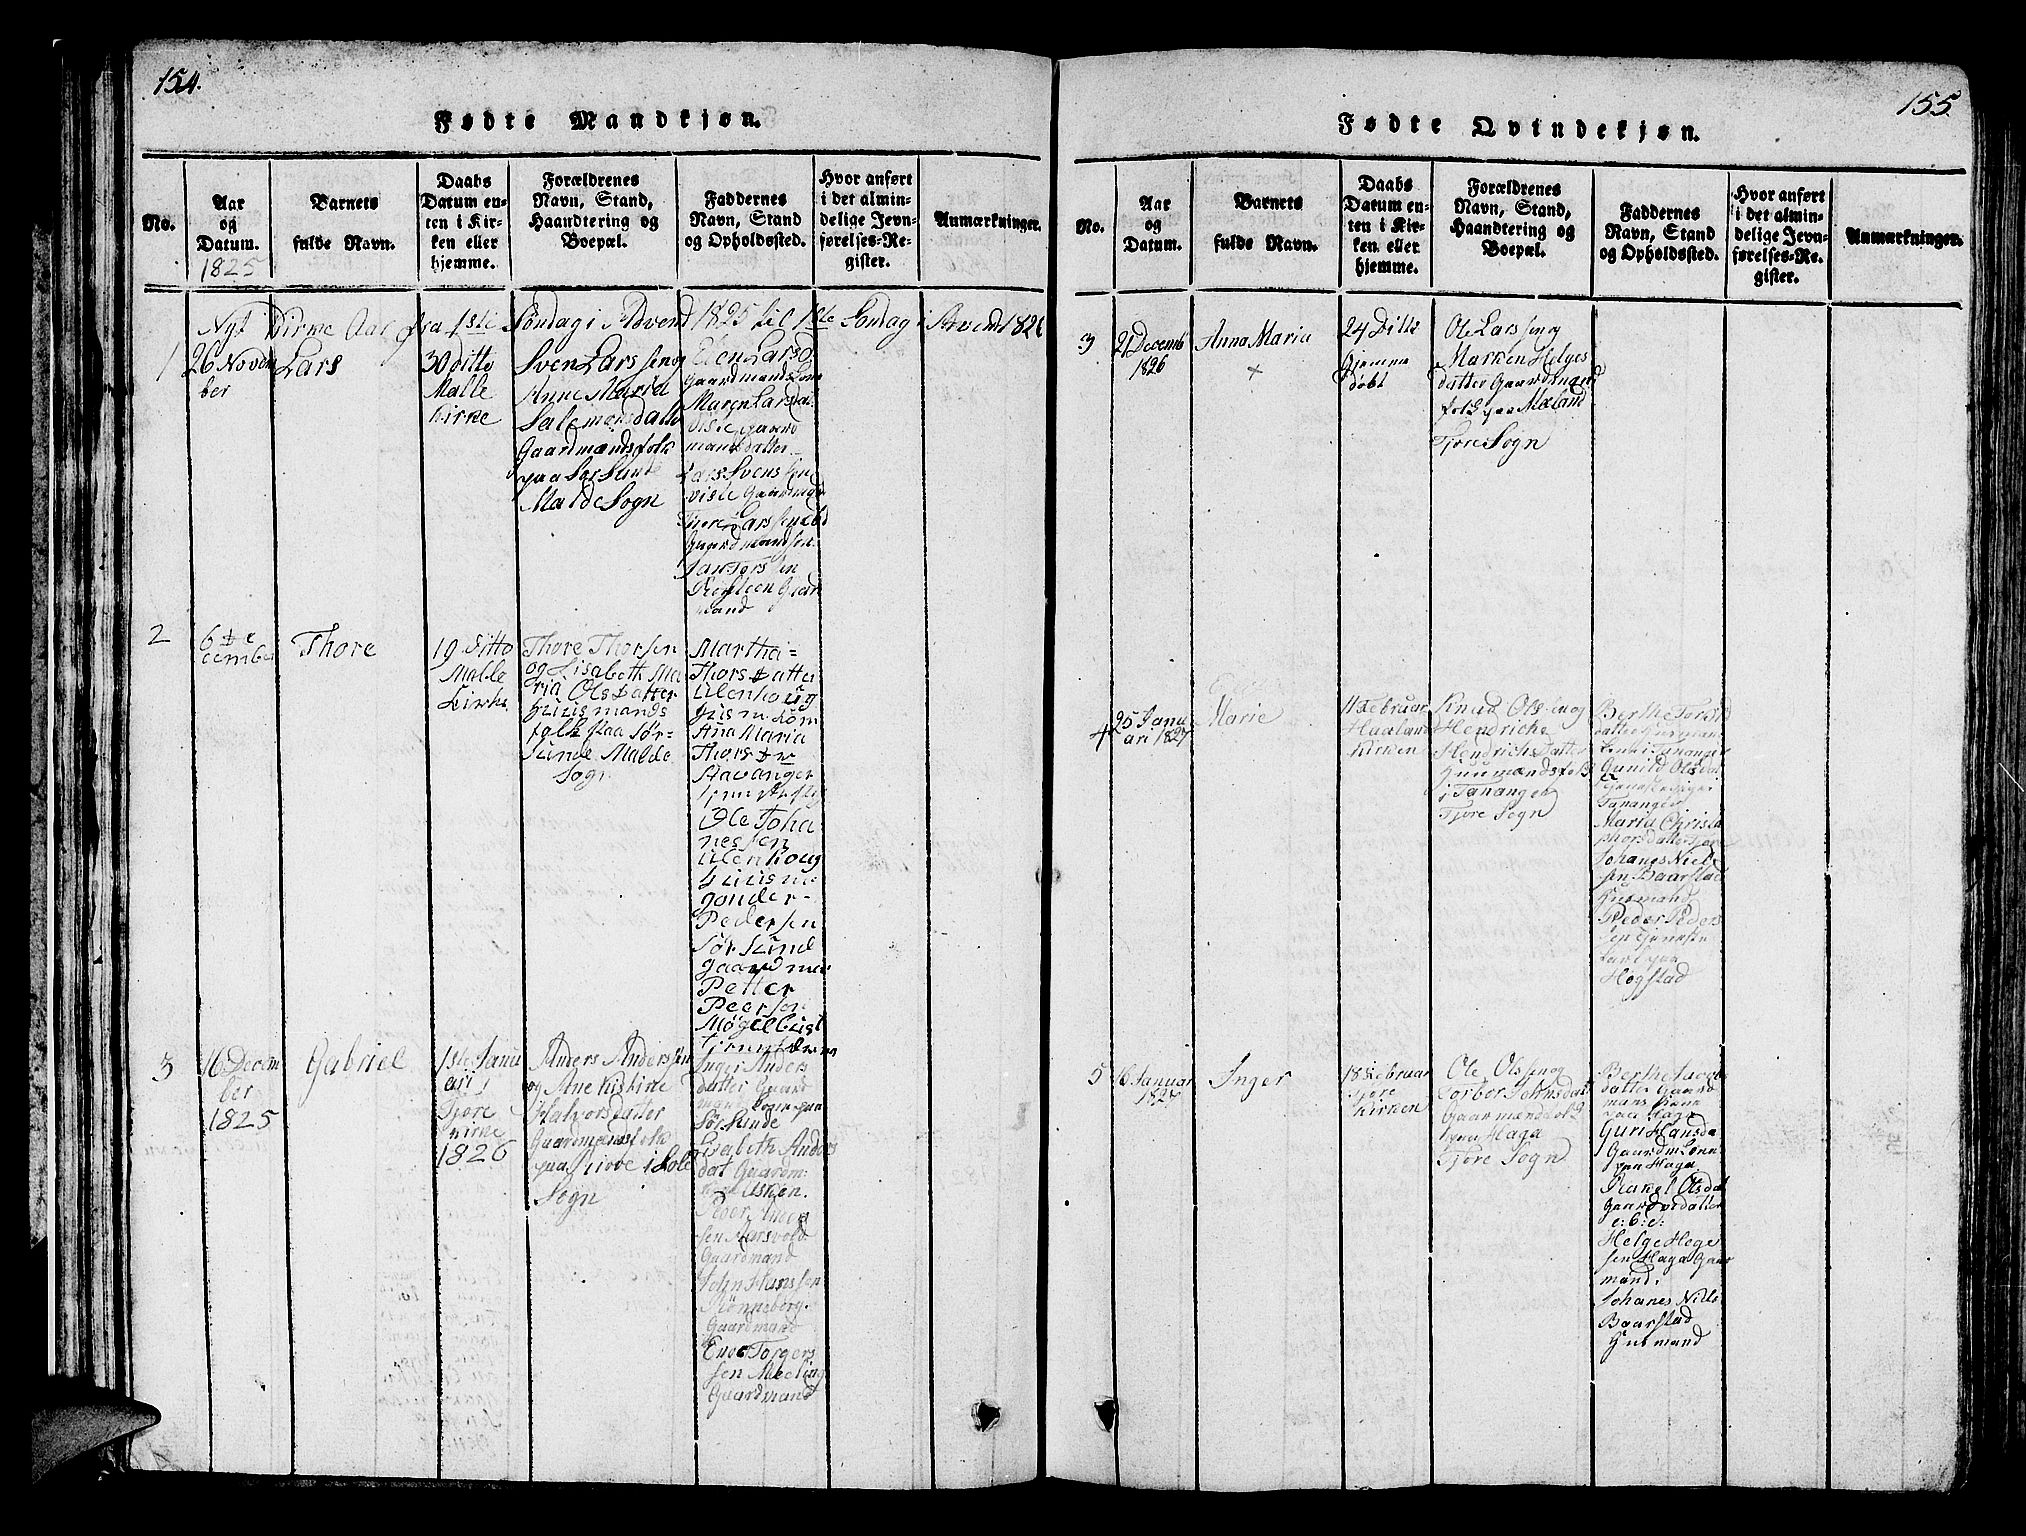 154.
Fødte Mandkjøn.
No.
Aar
og
Datum.
1825
Barnets
fulde Navn.
Daabs
Datum en-
ten i Kir-
ken eller
hjemme.
Forældrenes
Navn, Stand,
Haandtering og
Boepæl.
Faddernes
Navn, Stand
og Opholdssted.
Hvor anført
i det almin-
delige Jevn-
førelses-Re-
gister.
Anmærkninger.
Nyt Kirke Aar fra 1ste Søndag i Advend 1825 til 1ste Søndag i Advend 1826
1
26 Novem
ber
Lars
30 ditto
Malle
Kirke
Sven Larssen og
Anne Maria
Salemonsdatter
Gaardmandsfolk
paa Sør Sunde
Malde Sogn
Elen Larsd
Gaardmands
Maren Larsda
Viste gaard
mandsdatter
Lars Svenssen
viste Gaardmand
Thore Larssen
Gaardmandssøn
Torssen
Gaar
mand
2
6 De
cember
Thore
19 ditto
Malle
Kirke
Thore Thorsen
og Lisabeth Ma
ria Olsdatter
Huusmands
folk paa Sør-
sunde Malde
Sogn
Martha
Thorsdatter
Ulenhoug
Ana Maria
Thorsd
Stavanger
Ole Joha
nessen
Ulenhoug
Huusm
Pedersen
Sør Sund
gaardman
Petter
Peersen
3
16 Decem
ber
1825
Gabriel
1ste Janu
ari
Tjore
Kirke
1826
Anders Anderssen
og Ane Kistine
Halvorsdatter
Gaardmandsfolk
paa i Sole
Sogn
Inger Anders
datter Gaard
mands kone paa
Sør Sunde
Lisabeth Anders
dat Gaardm
Peder
sen
Gaardmand
John Hanssen
Rønneberg
Gaardmand
Torgers
sen Meling
Gaardmand
155
Fødte Qvindekjøn.
No.
Aar
og
Datum.
Barnets
fulde Navn.
Daabs
Datum en-
ten i Kir-
ken eller
hjemme.
Forældrenes
Navn, Stand,
Haandtering og
Boepæl.
Faddernes
Navn, Stand
og Opholdssted.
Hvor anført
i det almin-
delige Jevn-
førelses-Re-
gister.
Anmærkninger.
3
21 Decemb
1826
Anna Maria
+
24 Ditto
Hjemme
døbt
Ole Larssen og
Marken Helges
datter Gaardmand
folk paa Mæland
Tjore Sogn
4
25 Janu
ari 1827
Marie
11 Februar
Haaland
Kirken
Knud Olssen og
Hendriche
Hendrichsdatter
Huusmandsfolk
i Tananger
Tjore Sogn
Berthe
datter Husmand
Tananger
Gunild Olsdat
Tieneste
Tananger
Maria Christo
phersdatter
Johanes Niels
sen Baarstad
Husmand
Peder Peders
sen tjeneste
karl paa
Hogstad
5
16 Januar
1827
Inger
18 Februar
Tjore
Kirken
Ole Olssen og
Torbor Johnsdat
Gaarmandsfolk
paa Haga
Tjore Sogn
Berthe Jacobs
datter Gaard
mans kone
paa Haga
Guri Hansda
Gaardm konn
paa Haga
Rakel Olsdat
Gaardsdatter
e: b: d:
Helge Helge
sen Haga Gaar
mand.
Johanes Niels
Baarstad
Husmand